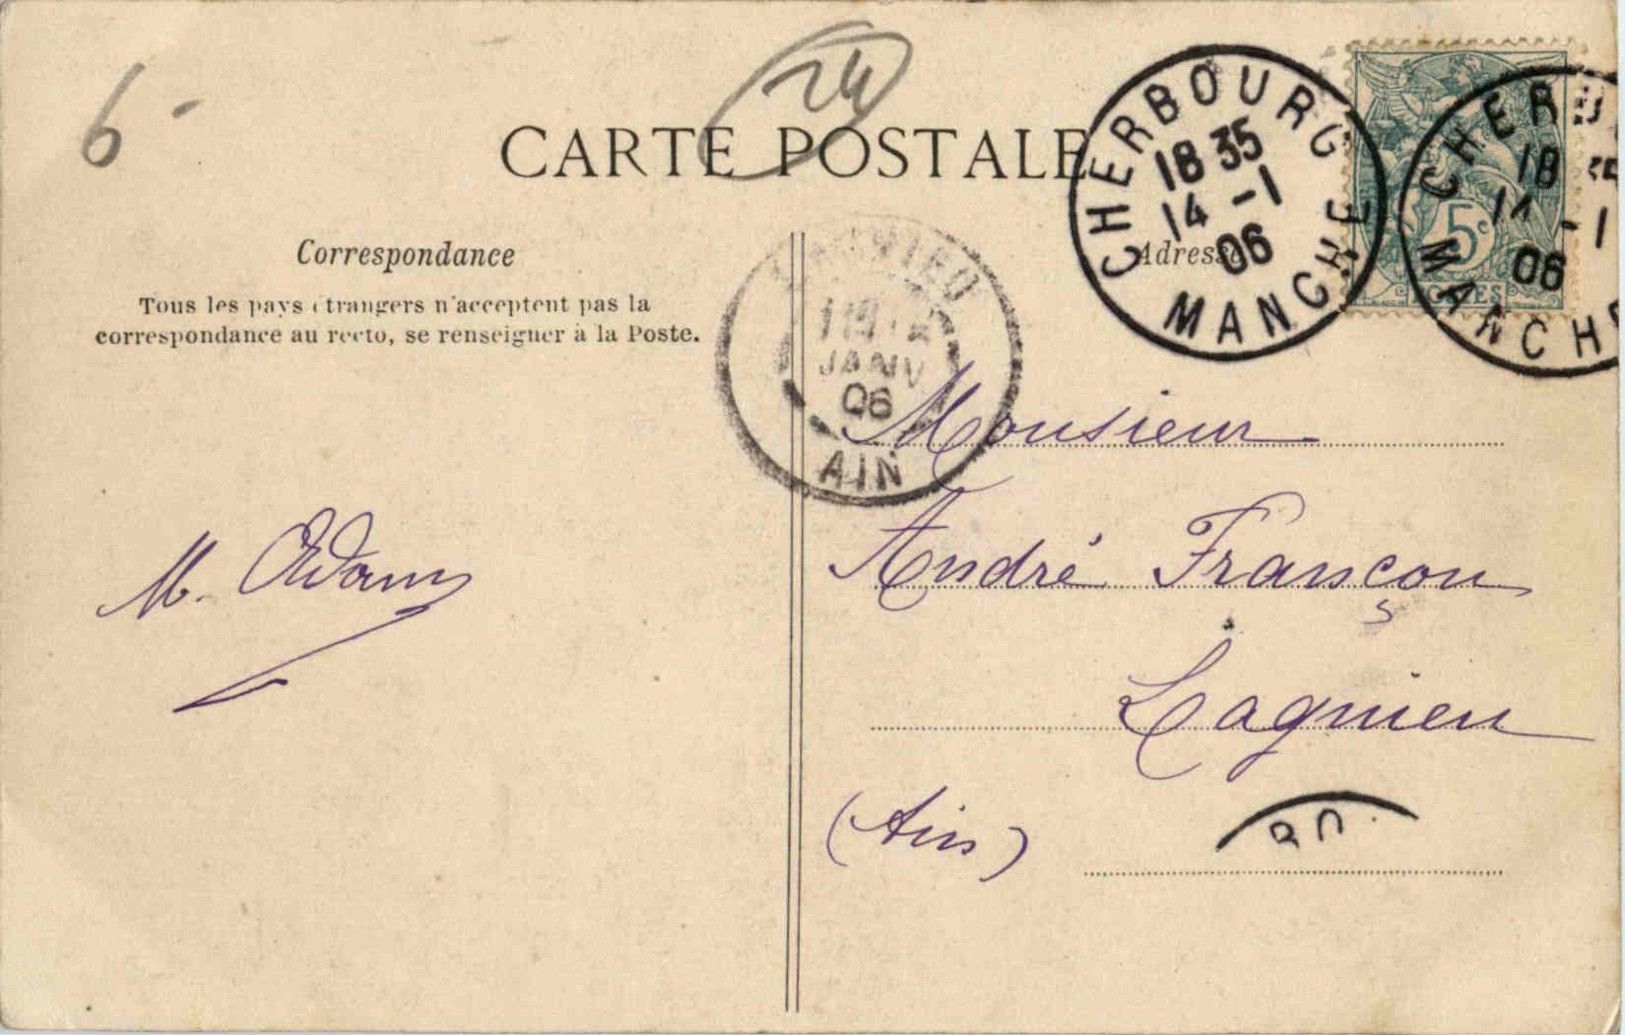 6-
24
CARTE POSTALE
Correspondance
Tous les pays étrangers n'acceptent pas la
correspondance au recto, se renseigner à la Poste.
Adresse
CHERBOURG
18 35
14 -1
06
MANCHE
CHERB
18 35
14 -1
06
MANCHE
5c
POSTES
JANV
06
AIN
Monsieur
André Françon
Lagnieu
(Ain)
M. Adam